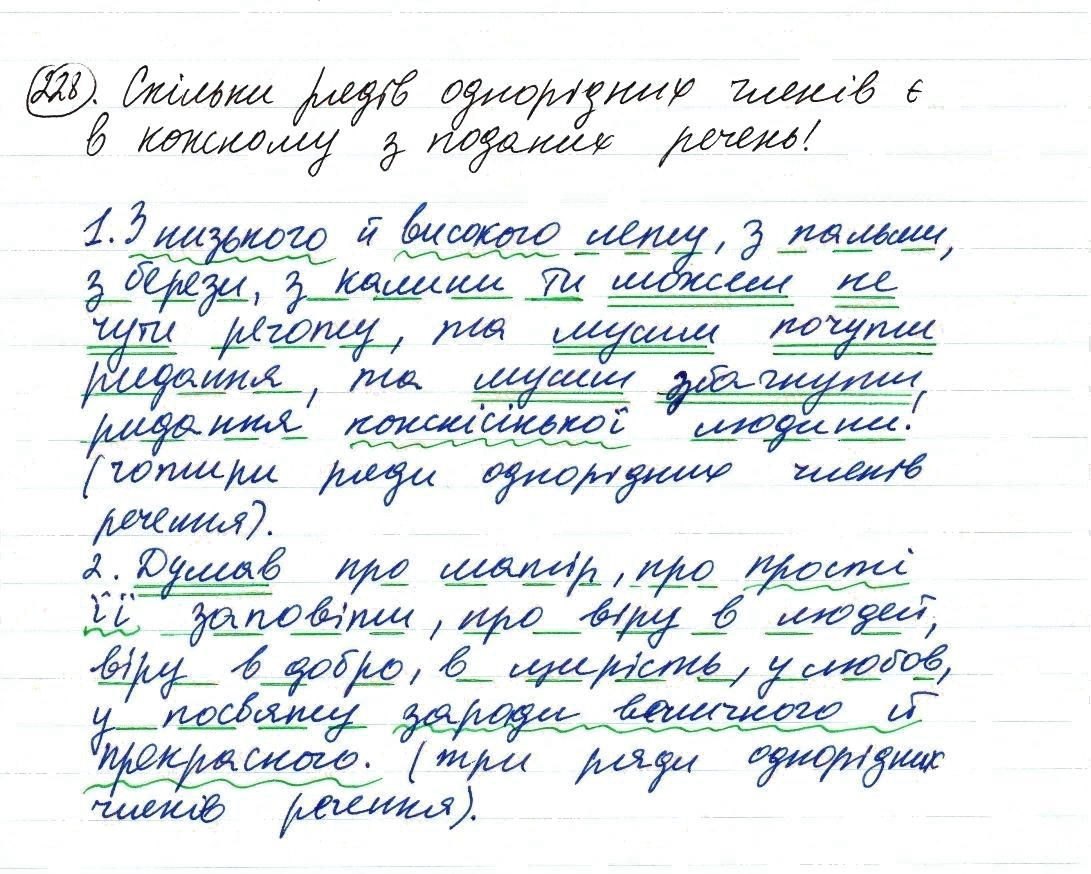 228. Скільки рядів однорідних членів є
в кожному з поданих речень!
1. З низького й високого лету, з пальми,
з берези, з калини ти можеш не
чути реготу, та мусиш почути
ридання, та мусиш збагнути
ридання кожнісінької людини!
(чотири ряди однорідних членів
речення).
2. Думав про матір, про прості
її заповіти, про віру в людей,
віру в добро, в щирість, у любов,
у посвяту заради величного й
прекрасного. (три ряди однорідних
членів речення).